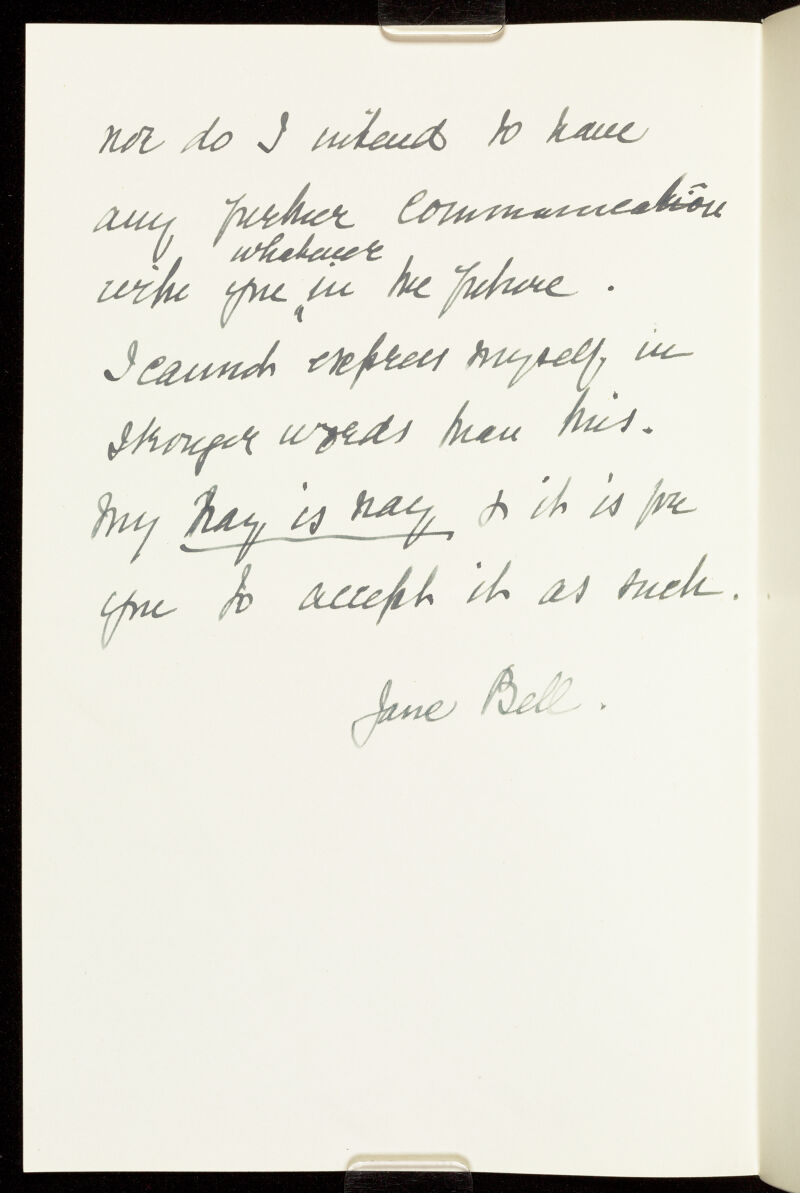 nor do I intend to have
any further communication
whatever
with you in the future.
I cannot express myself in
stronger words than this.
My nay is nay & it is for
you to accept it as such.
Jane Bell.